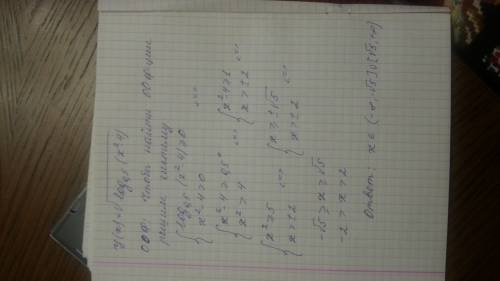 y(x)=√log₀,₅(x²-4)
ООФ: чтобы найти ООФ-ции
решим систему
{log₀,₅(x²-4)≥0
{x²-4>0 <=>
{x²-4≥0,5⁰
{x²>4 <=>
{x²-4≥1
{x>±2 <=>
{x²≥5
{x>±2 <=>
{x≥±√5
{x>±2 <=>
-√5≥x≥√5
-2>x>2
Ответ: x∈(-∞,√5]U[√5,+∞)